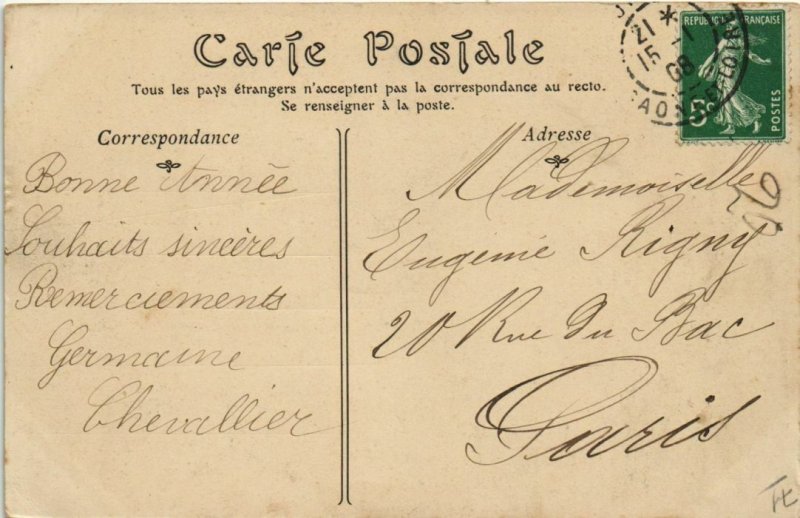 Carte Postale
Tous les pays étrangers n'acceptent pas la correspondance au recto.
Se renseigner à la poste.
Correspondance
Bonne Année
Souhaits sincères
Remerciements
Germaine
Chevallier
Adresse
Mademoiselle
Eugénie Rigny
20 Rue du Bac
Paris
RÉPUBLIQUE FRANÇAISE
POSTES
5c
21 *
15 -1
08